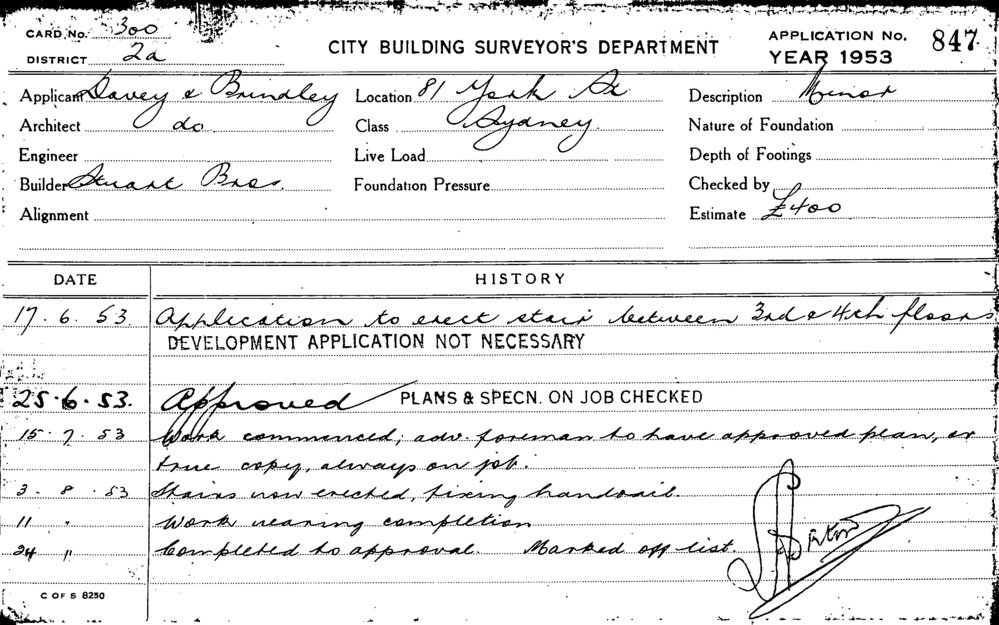 CARD No. 300
DISTRICT 2a
CITY BUILDING SURVEYOR'S DEPARTMENT
APPLICATION No. 847
YEAR 1953
Applicant Davey & Brindley Location 81 York St Description Minor
Architect do Class Sydney Nature of Foundation
Engineer Live Load Depth of Footings
Builder Stuart Bros. Foundation Pressure Checked by
Alignment Estimate £400
DATE HISTORY
17.6.53 Application to erect stair between 3rd & 4th floors
DEVELOPMENT APPLICATION NOT NECESSARY
25.6.53. Approved PLANS & SPECN. ON JOB CHECKED
15.7.53 Work commenced; adv. foreman to have approved plan, or
true copy, always on job.
3.8.53 Stairs now erected, fixing handrail.
11 " Work nearing completion
24 " Completed to approval. Marked off list.
C OF S 8250